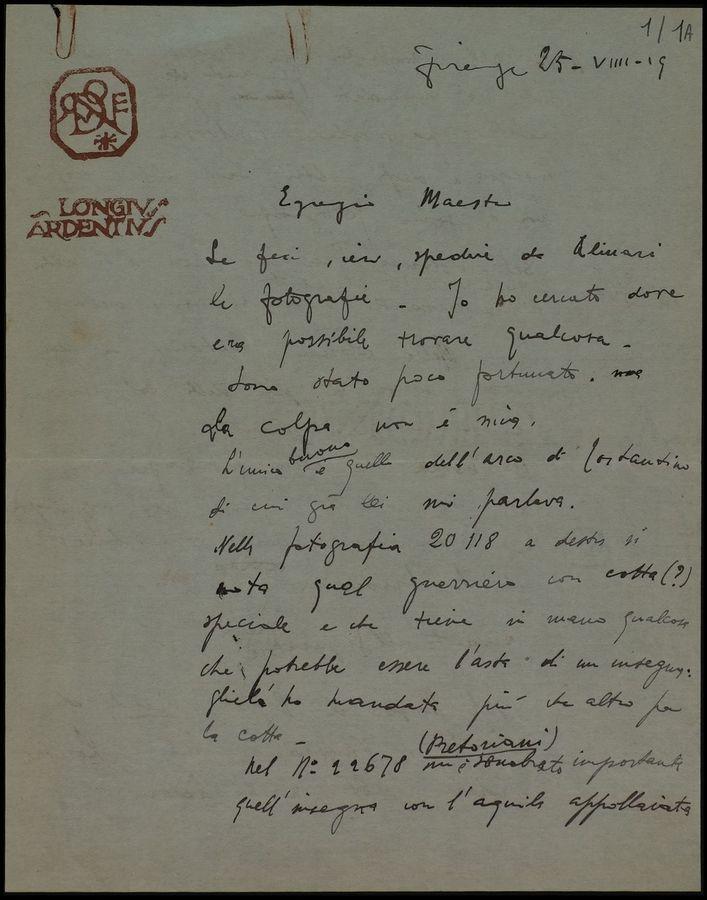 1/1A
Firenze 25-VIIII-19
LONGIVS
ARDENTIVS
Egregio Maestro
Le feci, ieri, spedire da Alinari
le fotografie - Io ho cercato dove
era possibile trovare qualcosa -
Sono stato poco fortunato. ma
La colpa non è mia.
L'unico buono è quello dell'arco di Costantino
di cui già Lei mi parlava.
Nella fotografia 20118 a destra si
nota quel guerriero con cotta (?)
speciale e che tiene in mano qualcosa
che potrebbe essere l'asta di un'insegna.
gliela ho mandata più che altro per
la cotta -
(Pretoriani)
Nel No 22678 mi è sembrato importante
quell'insegna con l'aquila appollaiata